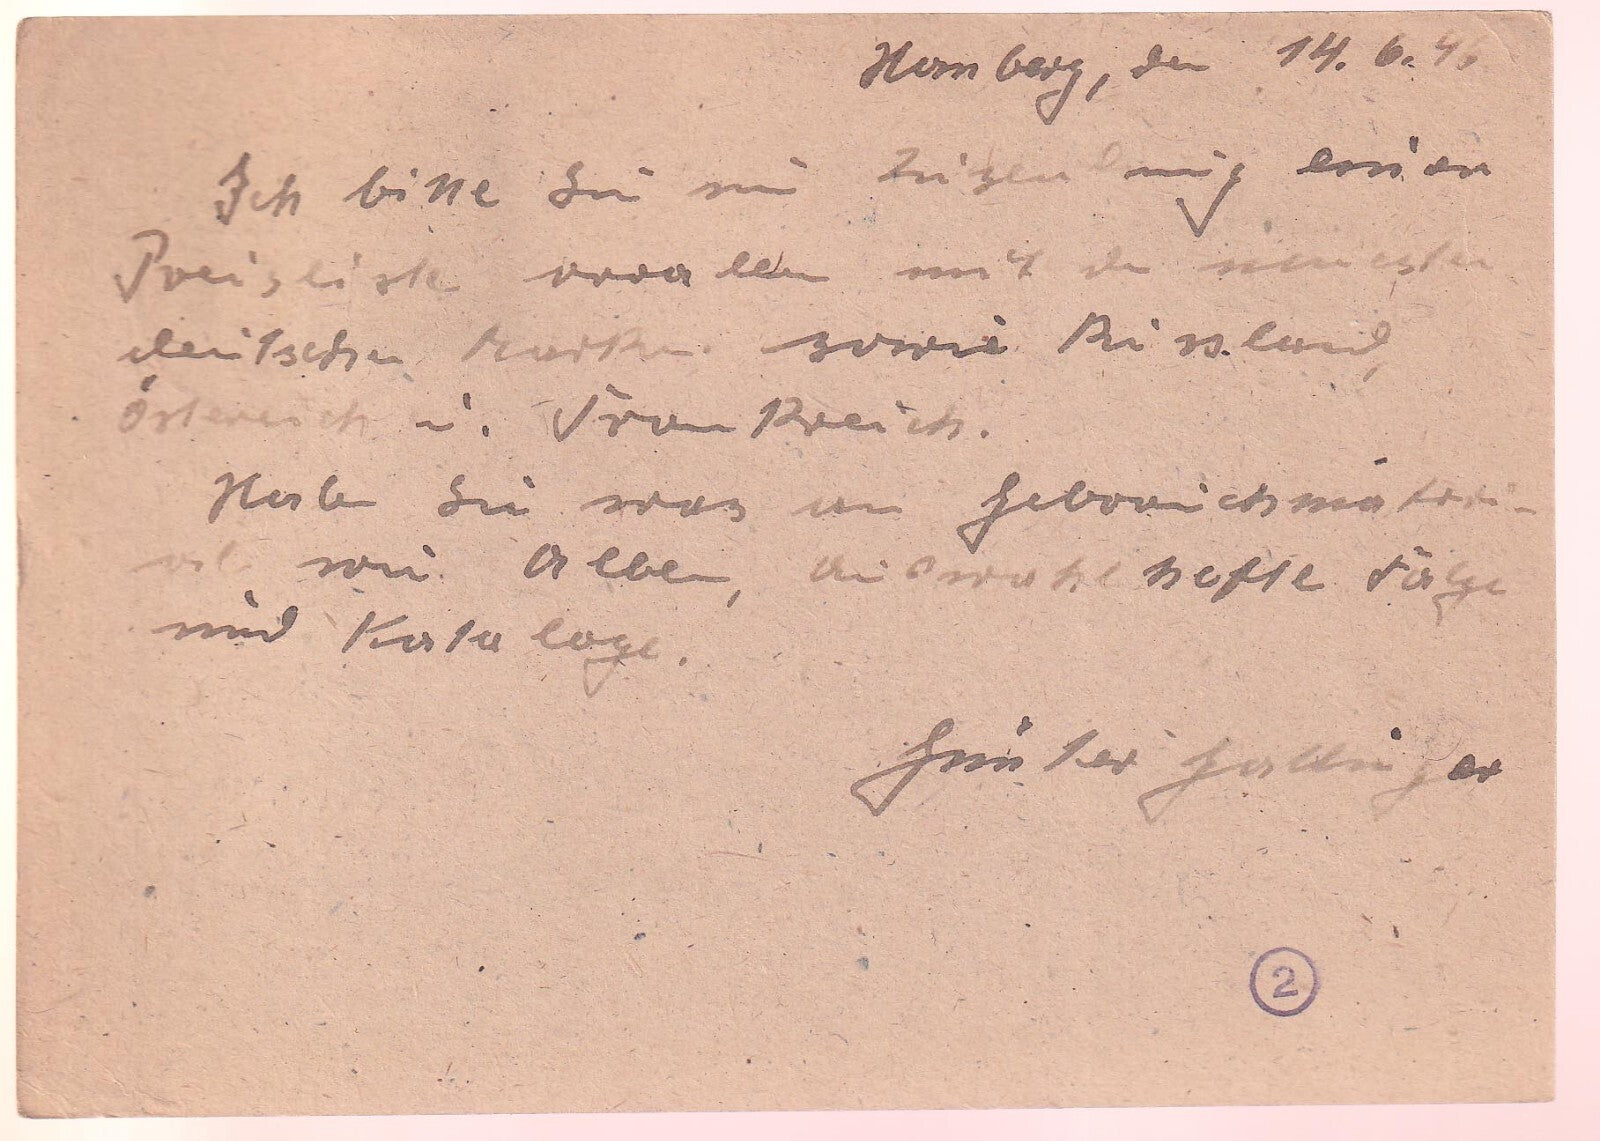 Homberg, den 14. 6. 46
Ich bitte Sie um Zusendung einer
Preisliste von allen mit den neuesten
deutschen Marken sowie Russland,
Österreich u. Frankreich.
Haben Sie was an Gebrauchsmateri-
al wie Alben, Auswahlhefte
und Kataloge.
Günter
2